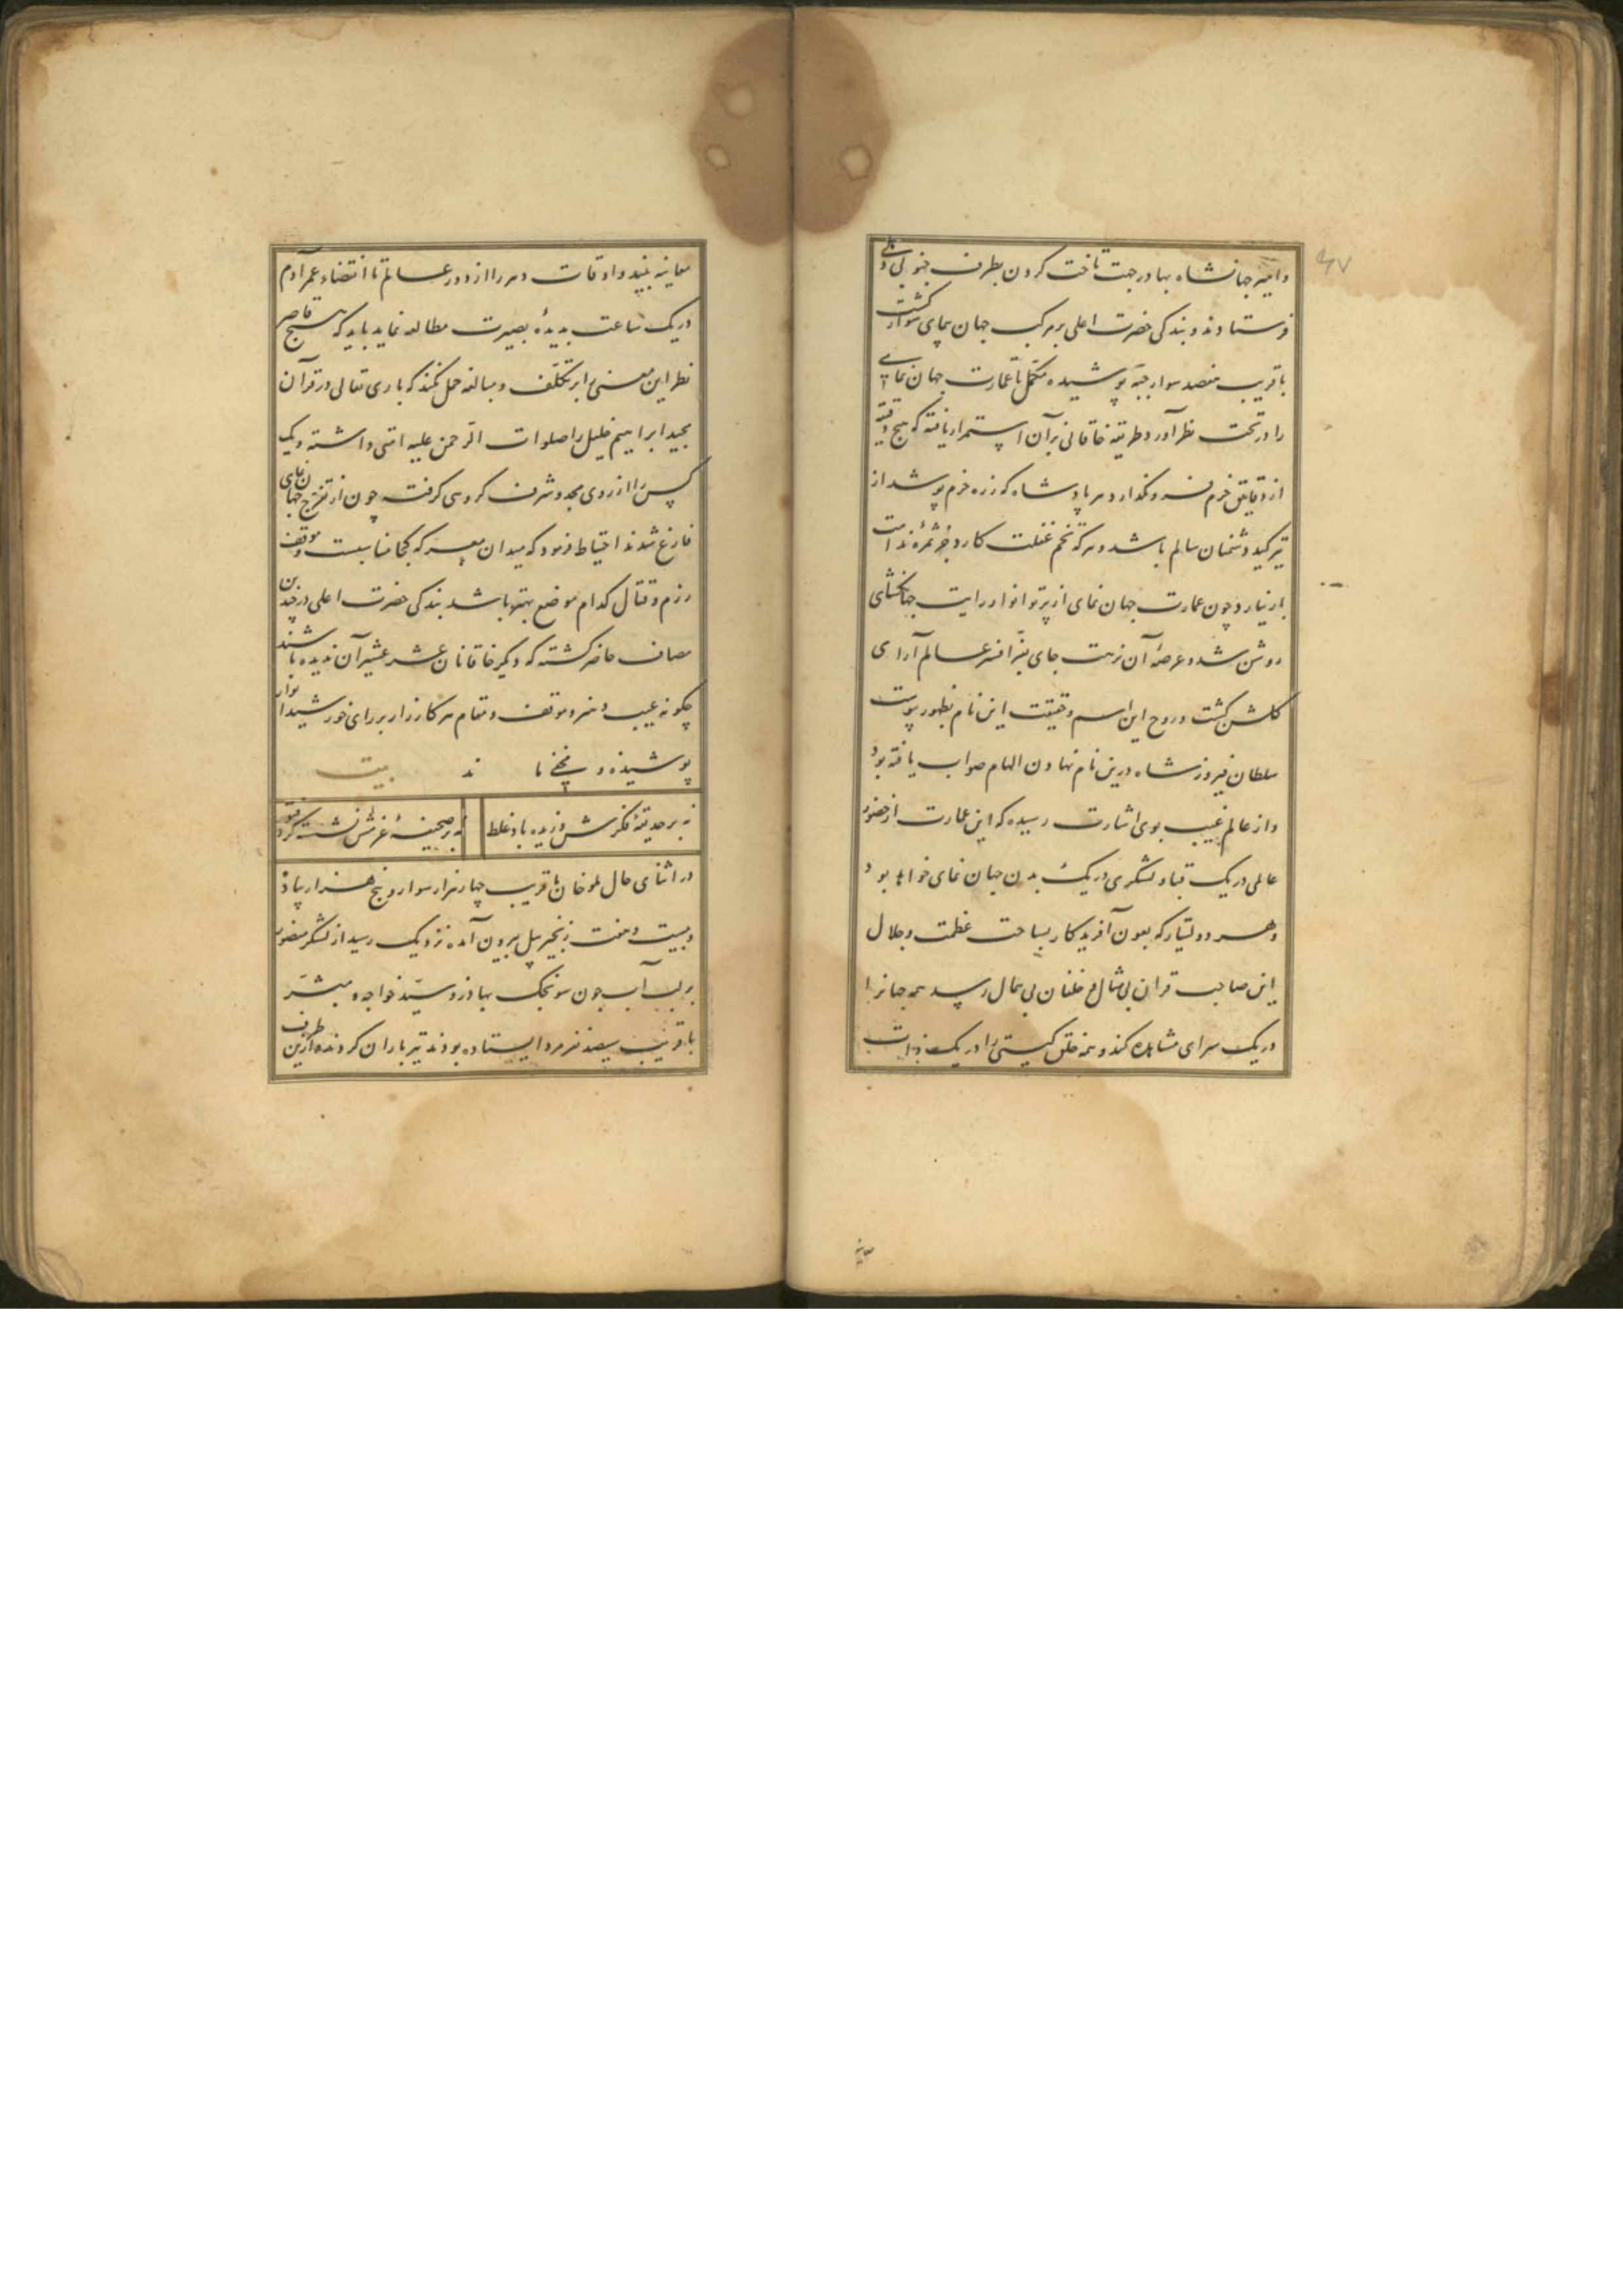 ۴۷
و امیر جهانشاه بهادر جهت تاخت کردن بطرف جنوبی دهلی
فرستادند و بندگی حضرت اعلی بر مرکب جهان پیمای سوار گشت
با قریب هفتصد سوار جبه پوشیده مکمل تا عمارت جهان نمای
را در تحت نظر آورد و طریقه خاقانی بر آن استمرار یافته که هیچ دقیقه
از دقایق خرم فرو نکذارد و هر پادشاه که زره خرم پوشد از
تیر کید دشمنان سالم باشد و هر که تخم غفلت کارد جز ثمره ندامت
بار نیارد و چون عمارت جهان نمای از پرتو انوار رایت جهانکشای
روشن شد و عرصه آن نزهت جای بفر افسر عالم آرای
کلشن کشت و روح این اسم و حقیقت این نام بظهور پیوست
سلطان فیروز شاه درین نام نهادن الهام صواب یافته بود
و از عالم غیب بوی اشارت رسیده که این عمارت از حضور
عالمی در یک قبا و لشکری در یک بدن جهان نمای خواهد بود
و هر دولتیار که بعون آفریدکار بساحت عظمت و جلال
این صاحب قران بی مثال و خاقان بی همال رسد همه جهانرا
در یک سرای مشاهده کند و همه خلق کیتی را در یک ذات
معاینه
معاینه بیند و اوقات دهر را از دور عالم تا انقضاء عمر آدم
در یک ساعت بدیده بصیرت مطالعه نماید باید که هیچ قاصر
نظر این معنی را بر تکلف و مبالغه حمل نکند که باری تعالی در قرآن
مجید ابراهیم خلیل را صلوات الرحمن علیه امتی داشته و یک
کس را از روی مجد و شرف کروهی کرفت چون از تفرج جهان نمای
فارغ شدند احتیاط فرمود که میدان معرکه کجا مناسبست و موقف
رزم و قتال کدام موضع بهتر باشد بندکی حضرت اعلی در چندین
مصاف حاضر کشته که دیکر خاقانان عشر عشیر آن ندیده باشند
چکونه عیب و هنر و موقف و مقام هر کارزار بر رای خورشید انوار
پوشیده و پنهان ماند بیت
نه بر حدیقه فکرش وزیده باد غلط
نه بر صحیفه عزمش نشسته کرد فتور
در اثنای حال ملو خان با قریب چهار هزار سوار و پنج هزار پیاده
و بیست و هفت زنجیر پیل بیرون آمده نزدیک رسید از لشکر منصور
بر لب آب جون سونجک بهادر و سید خواجه و مبشر
با قریب سیصد نفر مرد ایستاده بودند تیر باران کردند و ازین طرف